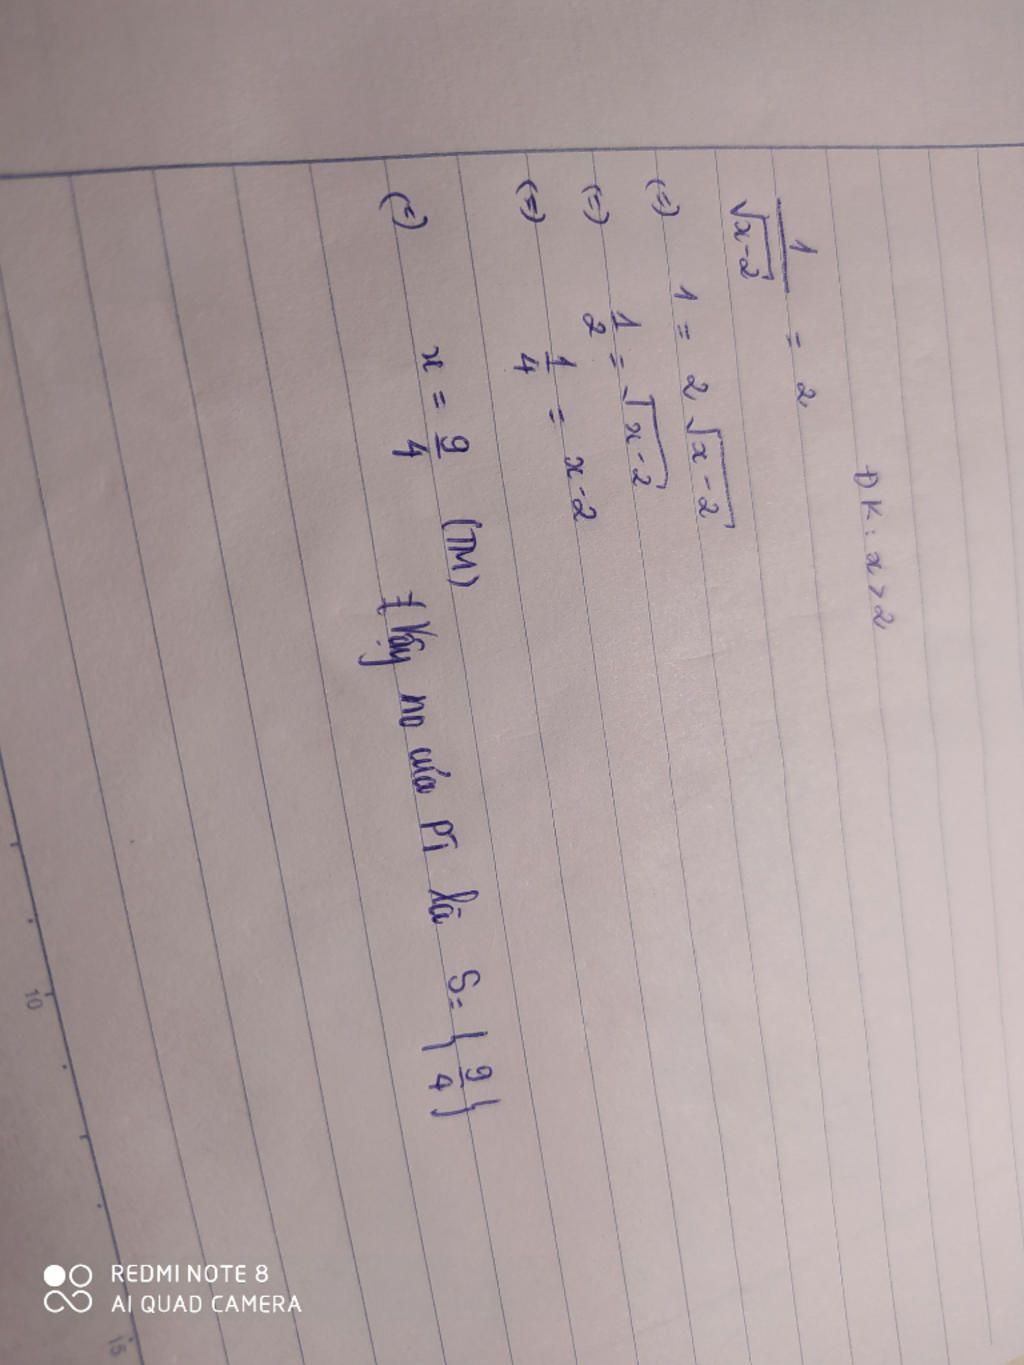 ĐK: x > 2
1/√(x-2) = 2
(=) 1 = 2√(x-2)
(=) 1/2 = √(x-2)
(=) 1/4 = x-2
(=) x = 9/4 (TM)
Vậy no của PT là S = {9/4}
10
15
REDMI NOTE 8
AI QUAD CAMERA